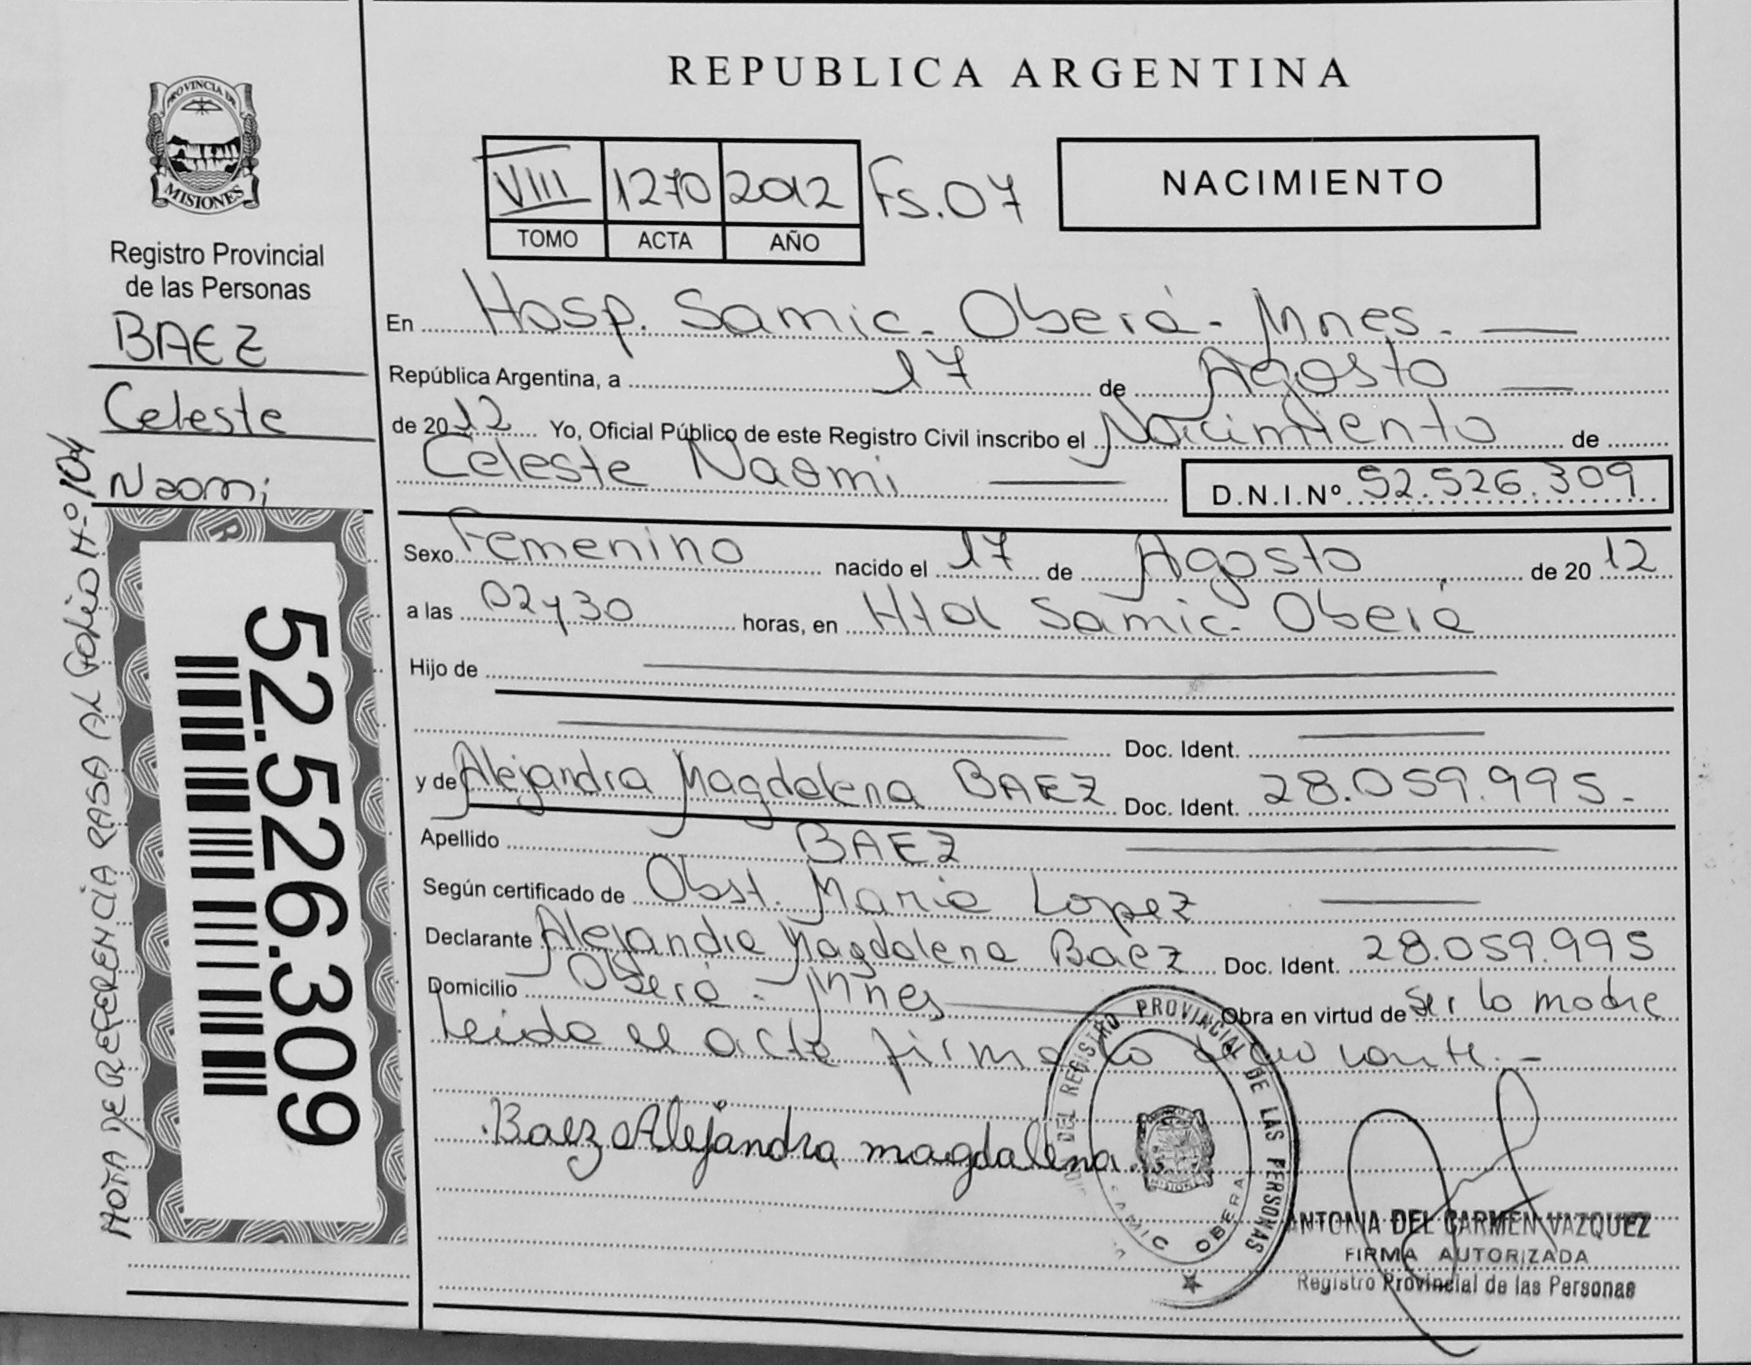 REPUBLICA ARGENTINA
PROVINCIA DE
MISIONES
Registro Provincial
de las Personas
BAEZ
Celeste
Naomi
NOTA DE REFERENCIA PASA AL FOLIO Nº 104
52.526.309
VIII 1270 2012 Fs.07
TOMO ACTA AÑO
NACIMIENTO
En Hosp. Samic. Oberá - Mnes.
República Argentina, a 17 de Agosto
de 2012 Yo, Oficial Público de este Registro Civil inscribo el Nacimiento de
Celeste Naomi D.N.I.Nº 52.526.309
Sexo Femenino nacido el 17 de Agosto de 2012
a las 02y30 horas, en Htal Samic. Oberá
Hijo de
Doc. Ident.
y de Alejandra Magdalena BAEZ Doc. Ident. 28.059.995.-
Apellido BAEZ
Según certificado de Obst. Maria Lopez
Declarante Alejandra Magdalena Baez Doc. Ident. 28.059.995
Domicilio Oberá - Mnes Obra en virtud de Ser la madre
Leida el acta firma la declarante.-
Baez Alejandra magdalena.
DEL REGISTRO PROVINCIAL DE LAS PERSONAS
SAMIC OBERA
MISIONES
ANTONIA DEL CARMEN VAZQUEZ
FIRMA AUTORIZADA
Registro Provincial de las Personas